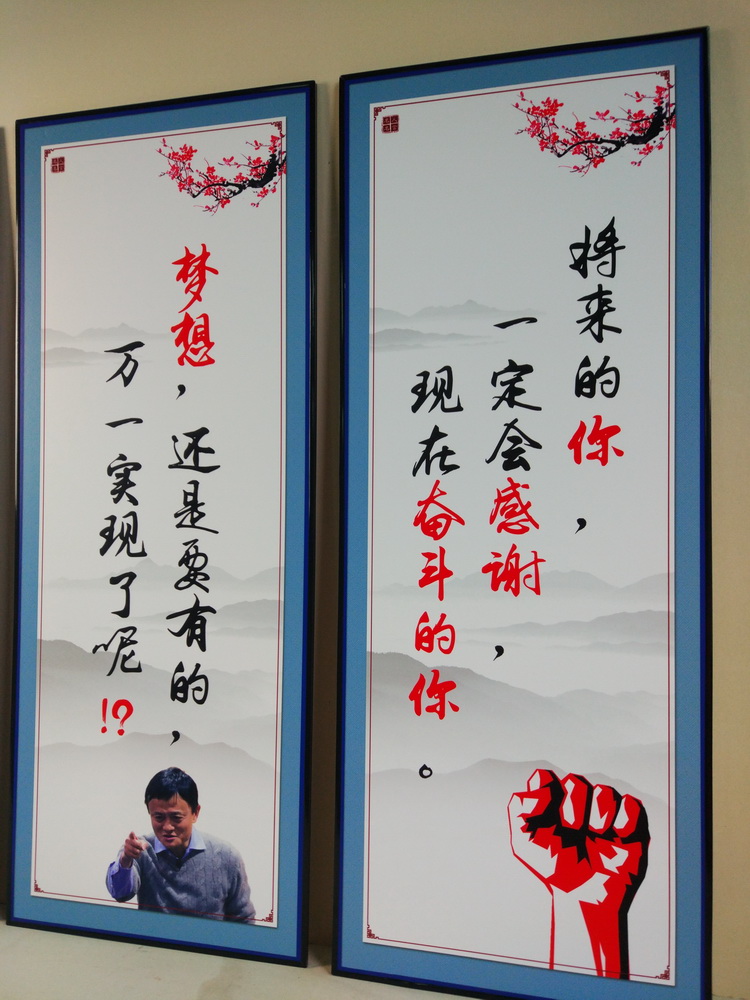 梦想，还是要有的，
万一实现了呢!?
将来的你，
一定会感谢，
现在奋斗的你。